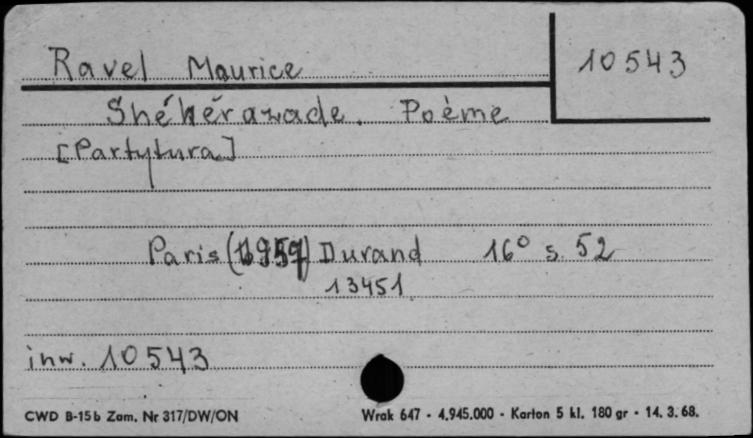 Ravel Maurice
10543
Shéhérazade. Poème
[Partytura]
Paris (1959) Durand 16° s. 52
13451
inw. 10543
CWD B-15b Zam. Nr 317/DW/ON
Wrak 647 - 4.945.000 - Karton 5 kl. 180 gr - 14. 3. 68.